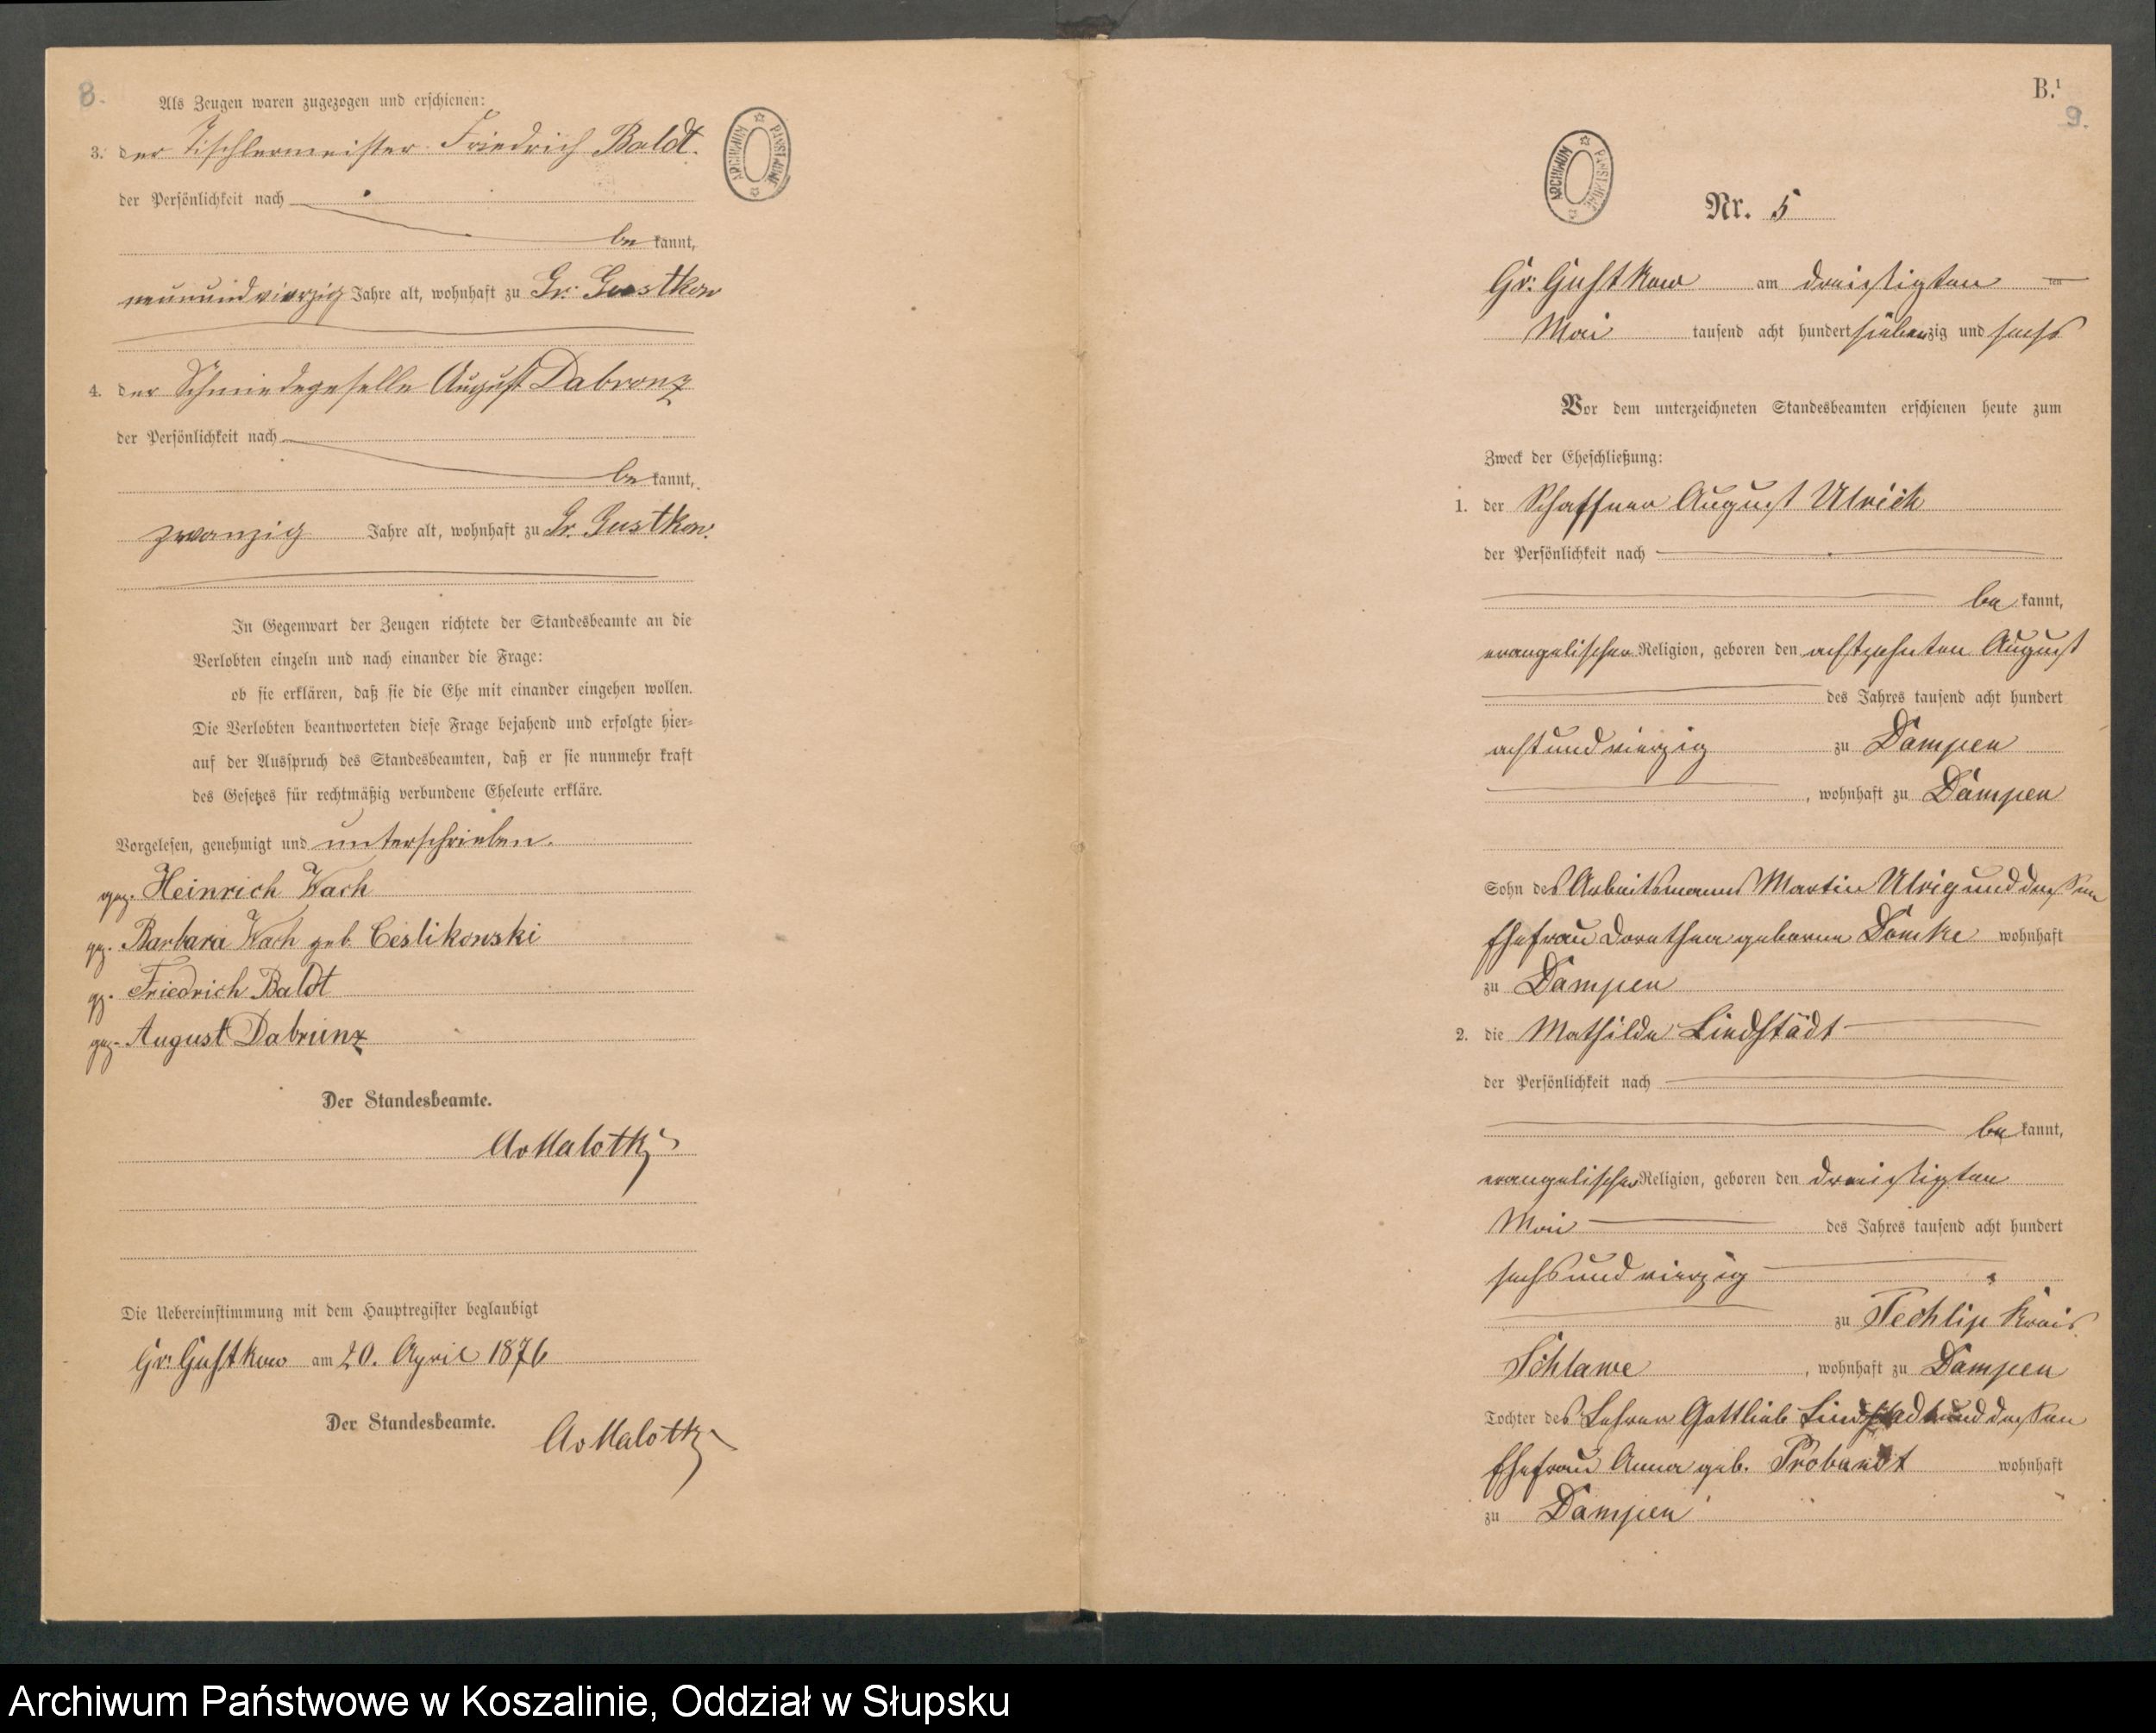 8.
Als Zeugen waren zugezogen und erschienen:
3. der Tischlermeister Friedrich Baldt.
der Persönlichkeit nach
be kannt,
neunundvierzig Jahre alt, wohnhaft zu Gr. Gustkow
4. der Schmiedegeselle August Dabronz
der Persönlichkeit nach
be kannt,
zwanzig Jahre alt, wohnhaft zu Gr. Gustkow.
In Gegenwart der Zeugen richtete der Standesbeamte an die
Verlobten einzeln und nach einander die Frage:
ob sie erklären, daß sie die Ehe mit einander eingehen wollen.
Die Verlobten beantworteten diese Frage bejahend und erfolgte hier-
auf der Ausspruch des Standesbeamten, daß er sie nunmehr kraft
des Gesetzes für rechtmäßig verbundene Eheleute erkläre.
Vorgelesen, genehmigt und unterschrieben.
gez. Heinrich Wach
gz. Barbara Wach geb. Ceslikowski
gz. Friedrich Baldt
gez. August Dabrunz
Der Standesbeamte.
Av Malotky
Die Uebereinstimmung mit dem Hauptregister beglaubigt
Gr. Gustkow am 20. April 1876
Der Standesbeamte.
Av Malotky
ARCHIWUM PAŃSTWOWE
B.¹
9.
ARCHIWUM PAŃSTWOWE
Nr. 5
Gr: Gustkow am dreißigten ten
Mai tausend acht hundert siebenzig und sechs
Vor dem unterzeichneten Standesbeamten erschienen heute zum
Zweck der Eheschließung:
1. der Schaffner August Ulrich
der Persönlichkeit nach
be kannt,
evangelischer Religion, geboren den achtzehnten August
des Jahres tausend acht hundert
achtundvierzig zu Dampen
, wohnhaft zu Dampen
Sohn des Arbeitsmanns Martin Ulrig und dessen
Ehefrau Dorothea geborene Domke wohnhaft
zu Dampen
2. die Mathilde Liedstädt
der Persönlichkeit nach
be kannt,
evangelischer Religion, geboren den dreißigten
Mai des Jahres tausend acht hundert
sechsundvierzig
zu Techlip Kreis
Schlawe , wohnhaft zu Dampen
Tochter des Lehrer Gottlieb und dessen
Ehefrau Anna geb. Probandt wohnhaft
zu Dampen
Archiwum Państwowe w Koszalinie, Oddział w Słupsku